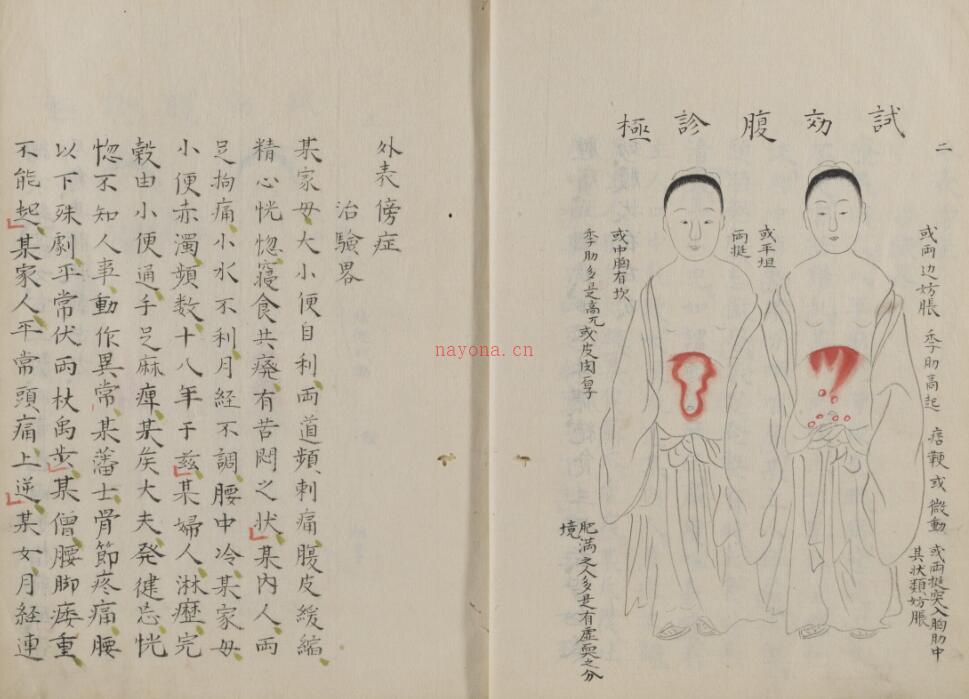 試効腹診極
二
或両边妨脹
季肋高起
痞鞕或微動
或両挺突入胸肋中
其状類妨脹
或平坦
両挺
或中胸有坎
季肋多是高冗或皮肉厚
肥満之人多是有虚耎之分
境
外表傍症
治験畧
某家毋大小便自利両道頻刺痛腹皮緩縮
精心恍惚寝食共廃有苦悶之状某内人両
足拘痛小水不利月経不調腰中冷某家毋
小便赤濁頻数十八年于茲某婦人淋瀝完
穀由小便通手足麻痺某矦大夫発健忘恍
惚不知人事動作異常某藩士骨節疼痛腰
以下殊劇平常伏両杖禹歩某僧腰脚痿重
不能起某家人平常頭痛上逆某女月経連
nayona.cn